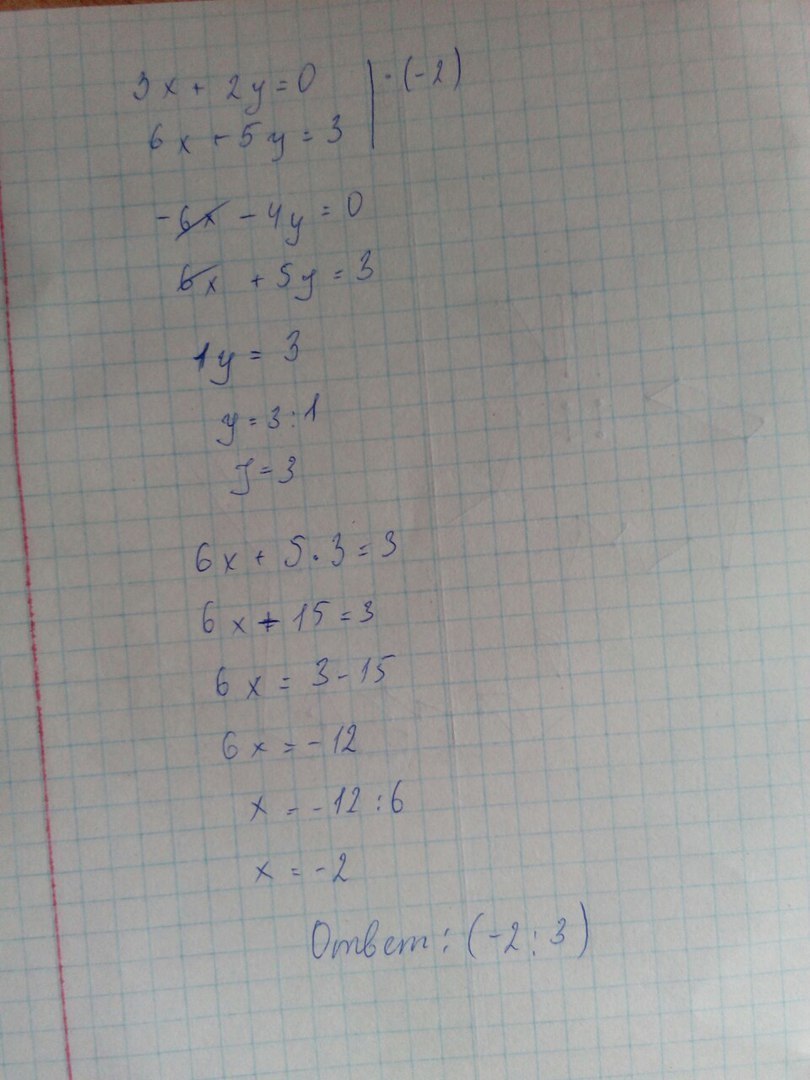 3x + 2y = 0 | · (-2)
6x + 5y = 3
-6x - 4y = 0
6x + 5y = 3
1y = 3
y = 3 : 1
y = 3
6x + 5 · 3 = 3
6x + 15 = 3
6x = 3 - 15
6x = -12
x = -12 : 6
x = -2
Ответ: (-2 ; 3)